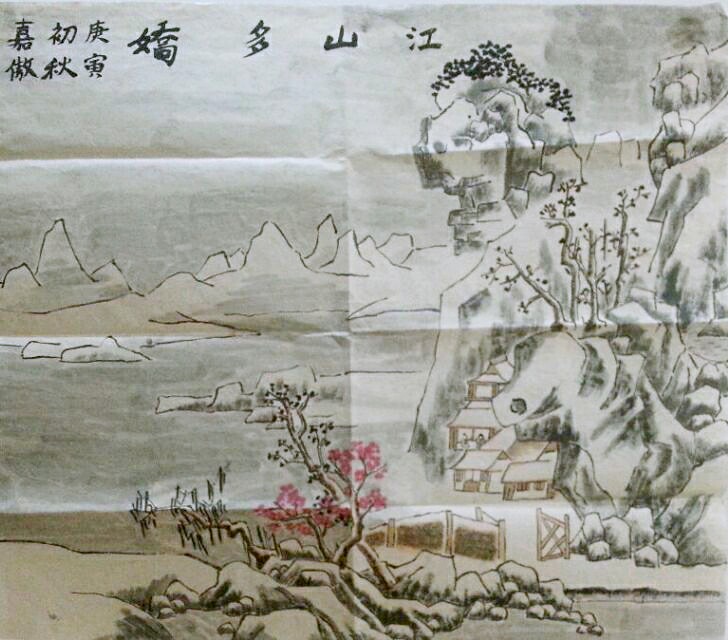 江山多嬌
庚寅
初秋
嘉傲